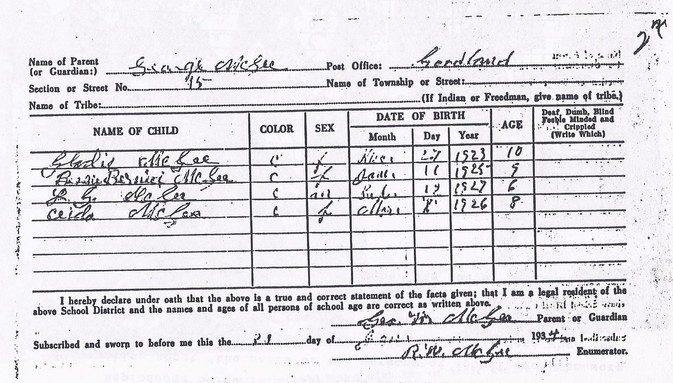 Name of Parent (or Guardian:) George McGee Post Office: Goodland
Section or Street No. 15 Name of Township or Street:
Name of Tribe: (If Indian or Freedman, give name of tribe.)
NAME OF CHILD COLOR SEX DATE OF BIRTH AGE Deaf, Dumb, Blind Feeble Minded and Crippled (Write Which)
Month Day Year
Gladis McGee C f 27 1923 10
Bernice McGee C f 11 1925 9
L. G. McGee C m 1927 6
McGee C f 1926 8
I hereby declare under oath that the above is a true and correct statement of the facts given; that I am a legal resident of the
above School District and the names and ages of all persons of school age are correct as written above.
Geo. W McGee Parent or Guardian
Subscribed and sworn to before me this the day of 1934
R.W. McGee Enumerator.